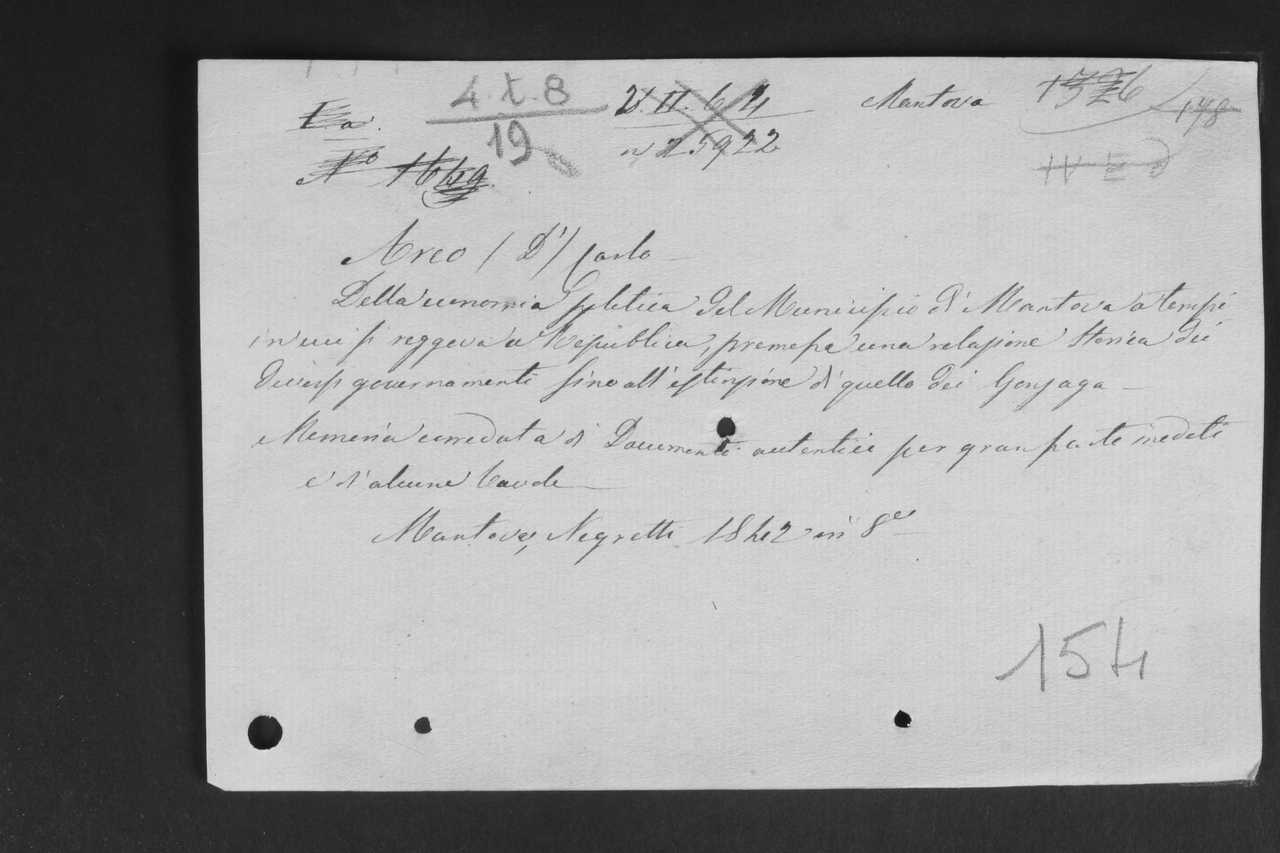 4. t. 8
19
Mantova
N° 1649
n 25922
Arco (D') Carlo
Della economia politica del Municipio di Mantova a tempi
in cui si reggeva a Republica, premessa una relazione storica dei
diversi governamenti sino all'estinzione di quello dei Gonzaga
Memoria corredata di Documenti autentici per gran parte inediti
e d'alcune Tavole
Mantova, Negretti 1842 in 8°
154